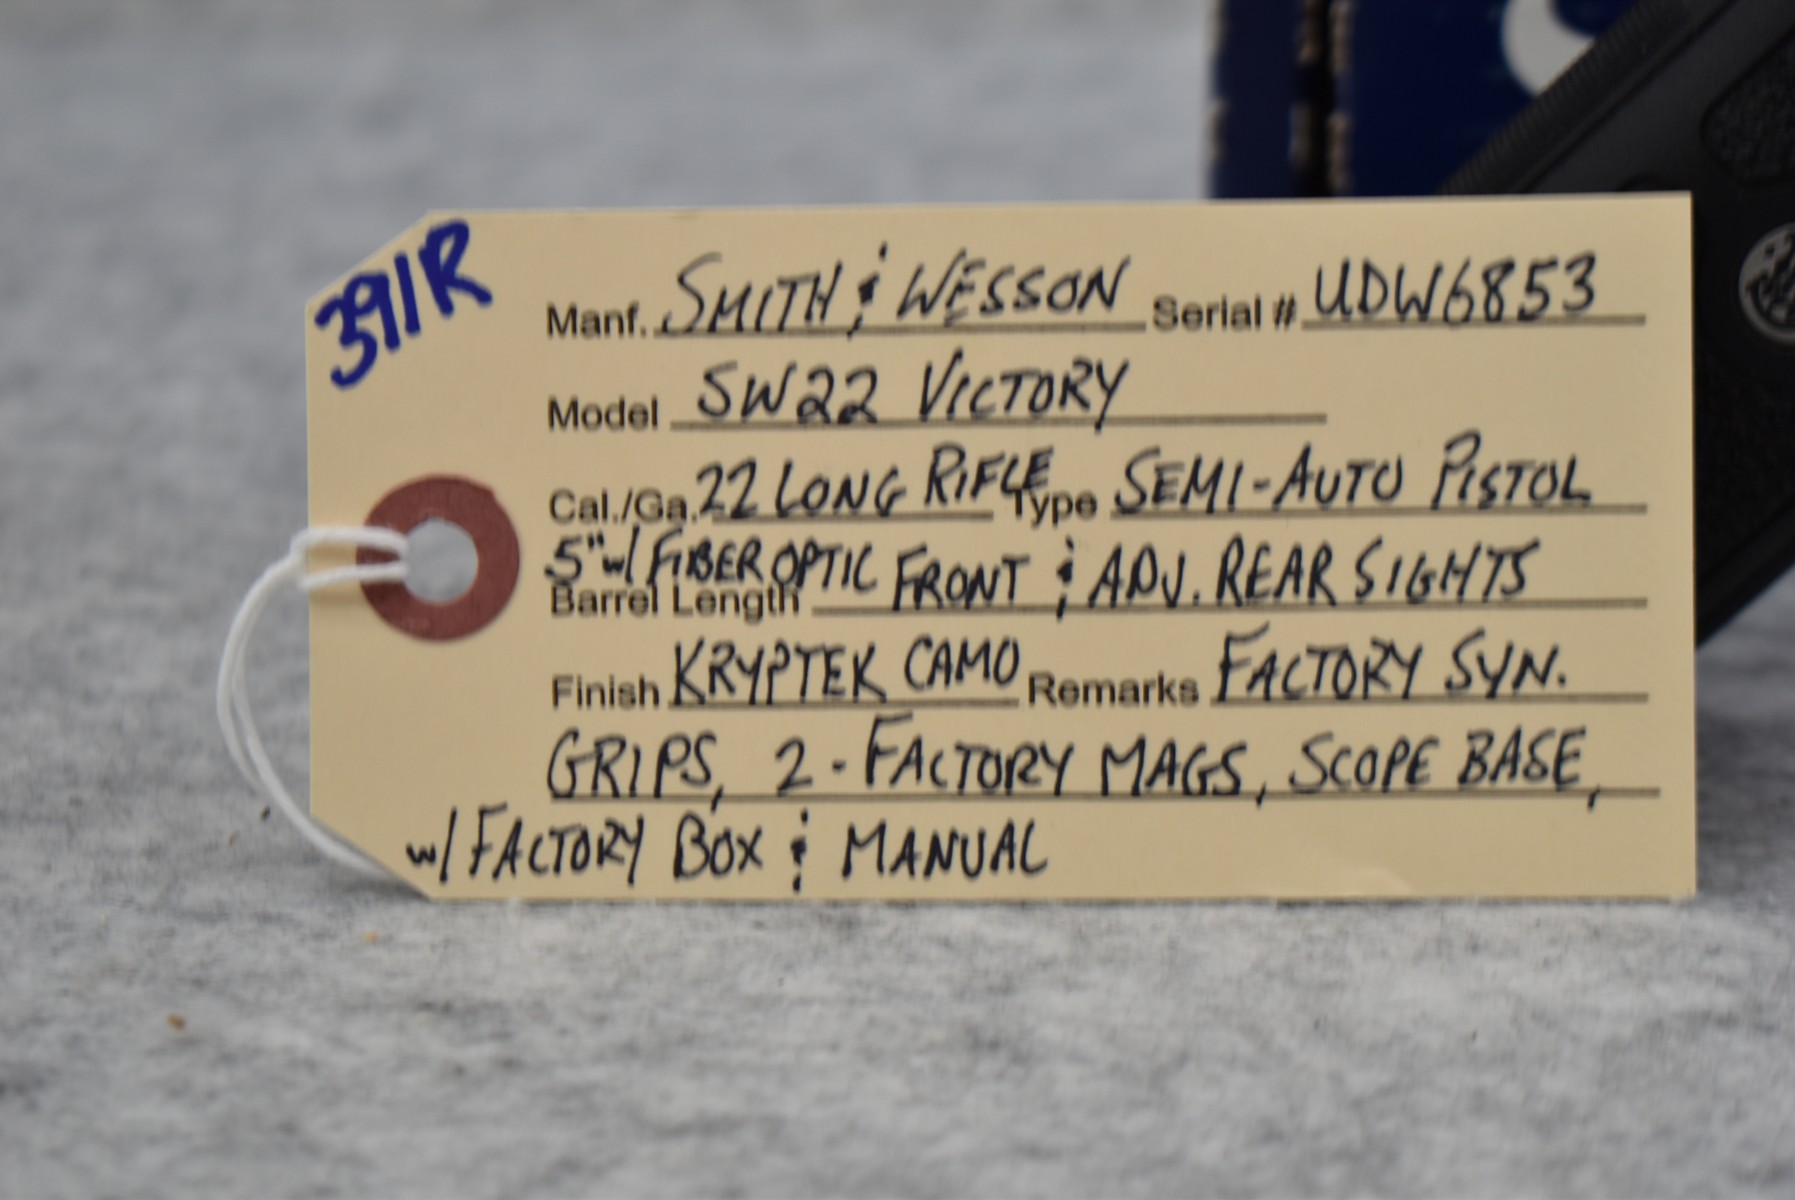 391R
Manf. SMITH & WESSON Serial # UDW6853
Model SW22 VICTORY
Cal./Ga. 22 LONG RIFLE Type SEMI-AUTO PISTOL
5" w/ FIBER OPTIC FRONT & ADJ. REAR SIGHTS
Barrel Length
Finish KRYPTEK CAMO Remarks FACTORY SYN.
GRIPS, 2 - FACTORY MAGS, SCOPE BASE,
w/ FACTORY BOX & MANUAL